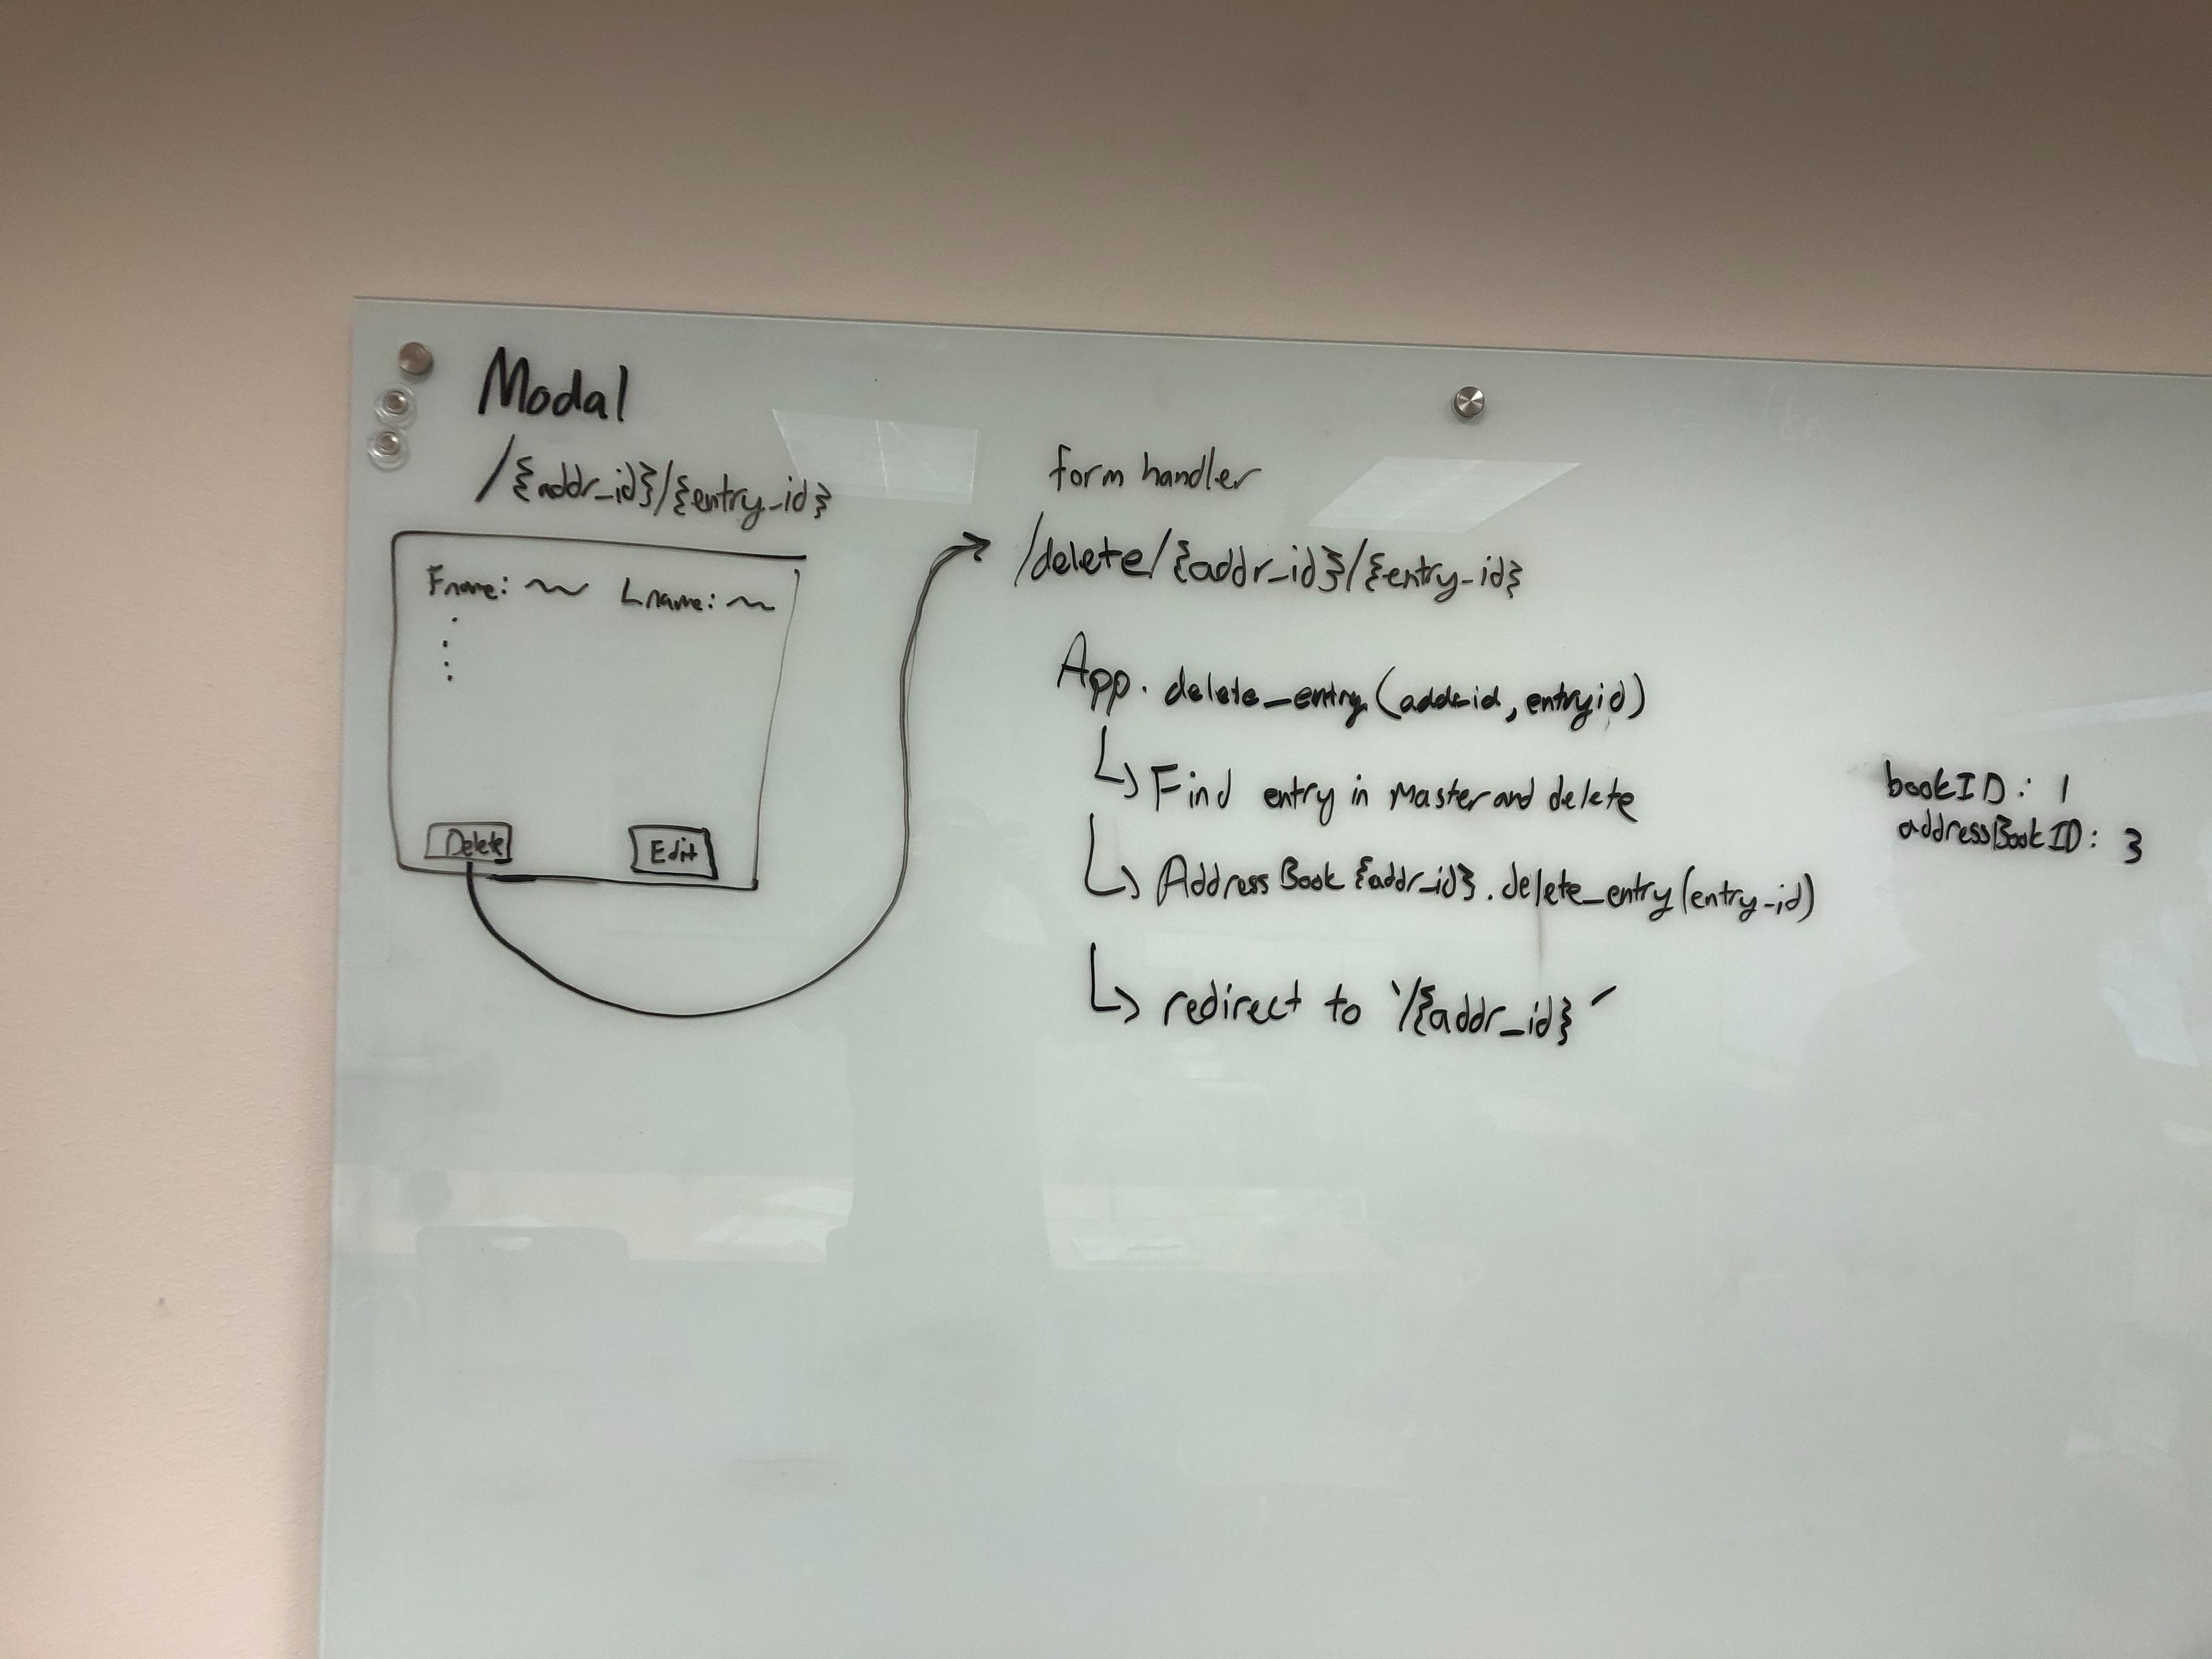 Modal
/{addr_id}/{entry_id}
Fname: Lname:
Delete Edit
form handler
/delete/{addr_id}/{entry_id}
App.delete_entry(addr_id, entryid)
Find entry in Master and delete
Address Book {addr_id}.delete_entry(entry_id)
redirect to '/{addr_id}'
bookID: 1
addressBookID: 3